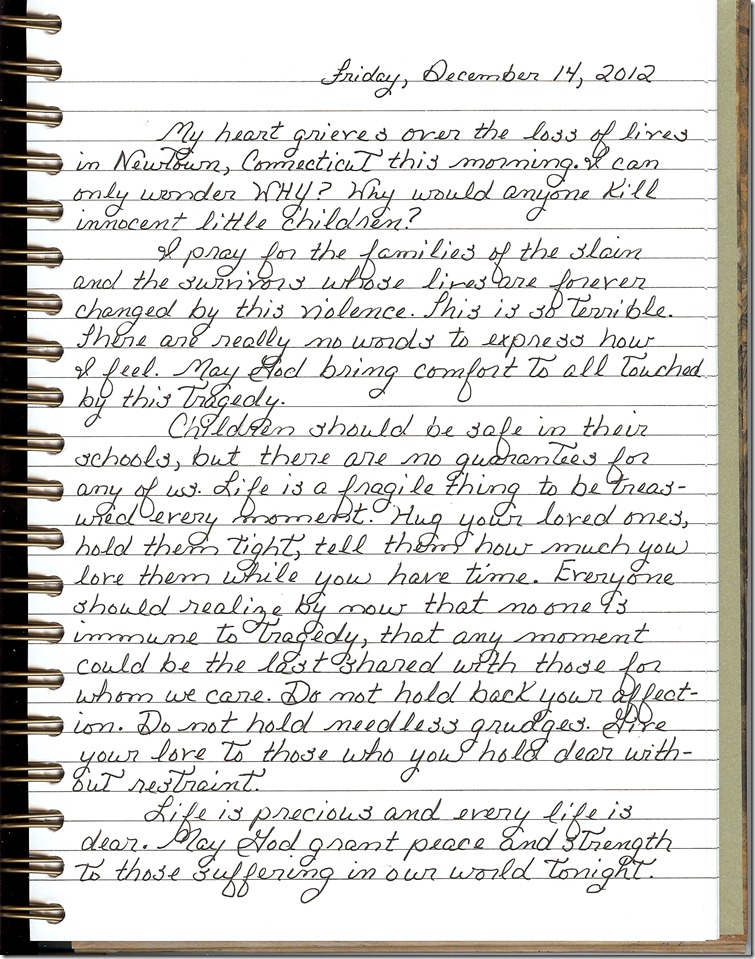 Friday, December 14, 2012
My heart grieves over the loss of lives
in Newtown, Connecticut this morning. I can
only wonder WHY? Why would anyone kill
innocent little children?
I pray for the families of the slain
and the survivors whose lives are forever
changed by this violence. This is so terrible.
There are really no words to express how
I feel. May God bring comfort to all touched
by this tragedy.
Children should be safe in their
schools, but there are no guarantees for
any of us. Life is a fragile thing to be treas-
ured every moment. Hug your loved ones,
hold them tight, tell them how much you
love them while you have time. Everyone
should realize by now that no one is
immune to tragedy, that any moment
could be the last shared with those for
whom we care. Do not hold back your affect-
ion. Do not hold needless grudges. Give
your love to those who you hold dear with-
out restraint.
Life is precious and every life is
dear. May God grant peace and strength
to those suffering in our world tonight.